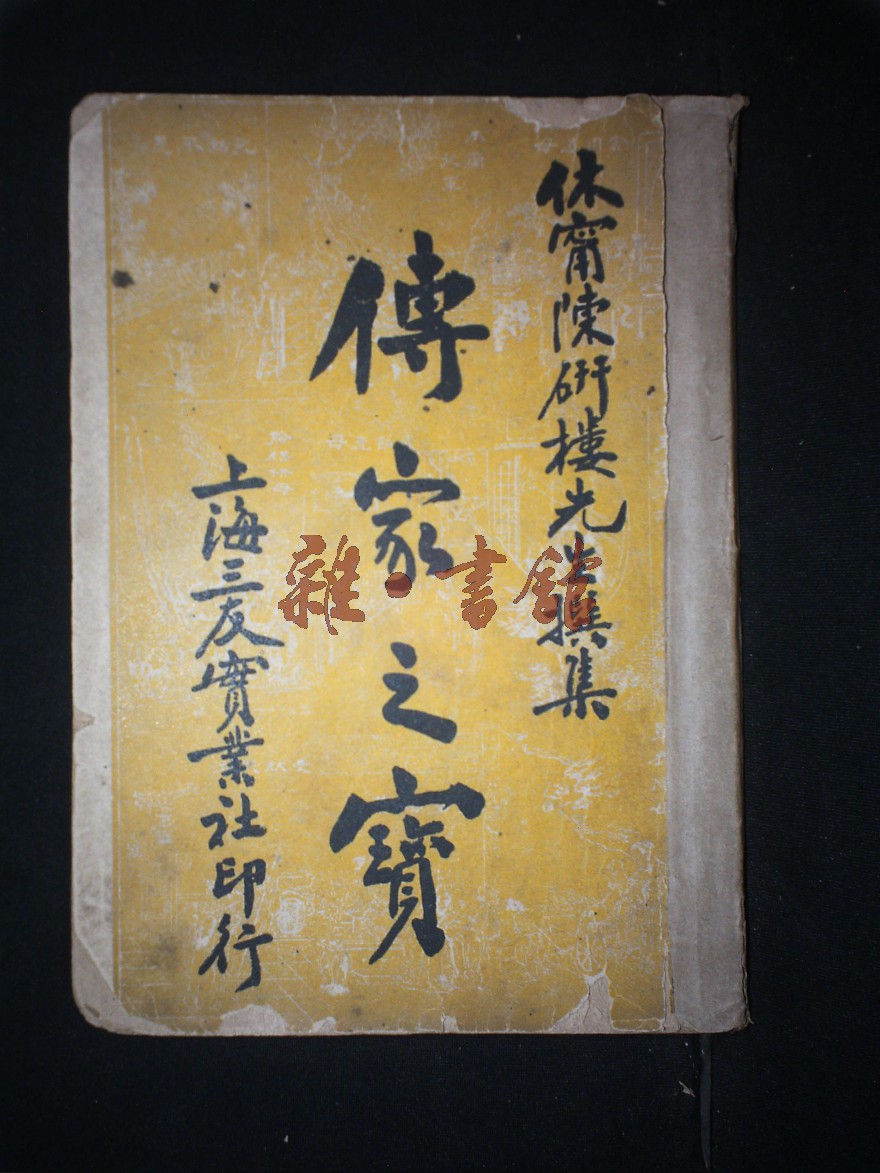 休甯陳研樓先生撰集
傳家之寶
上海三友實業社印行
雜·書館